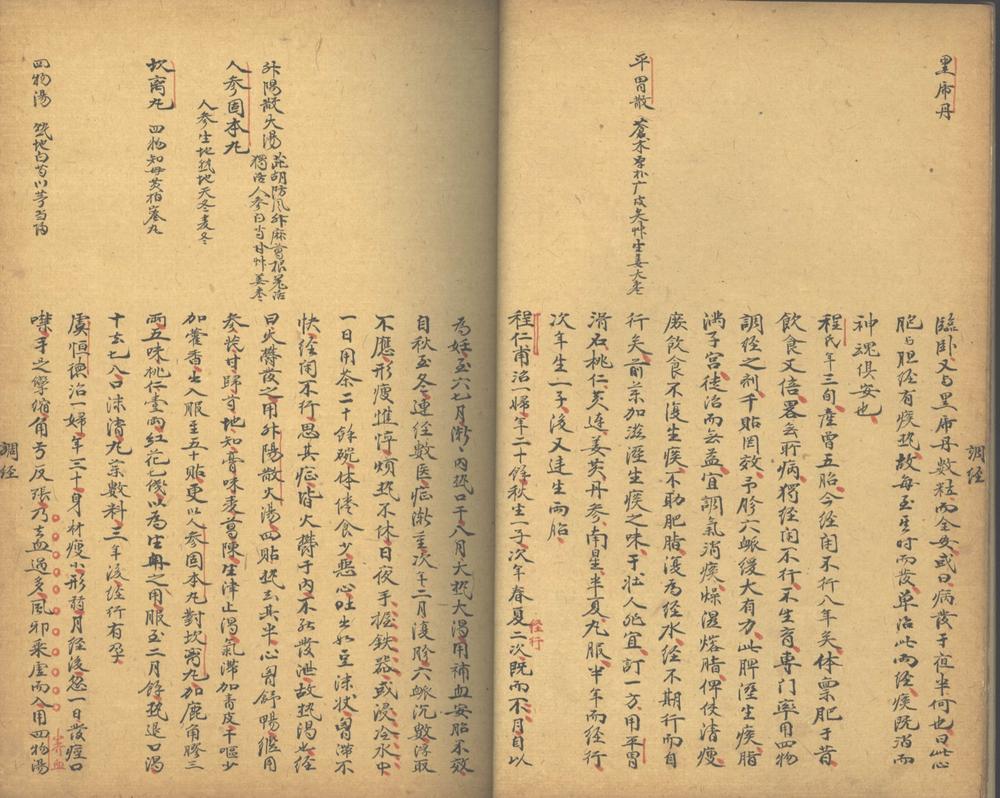 黑虎丹
臨臥又与黑虎丹数粒而全安或曰病發于夜半何也曰此心
肥与胆經有痰热故每至生時而發单治此两經痰既消而
神魂俱安也
程氏年三旬産曾五胎今經闭不行八年矣体禀肥于昔
飲食又倍畧無所病獨經闭不行不生育専门率用四物
調經之剂千貼罔效予胗六脈缓大有力此脾湿生痰脂
满子宫徒治而無益宜調氣消痰燥湿熔脂俾使清瘦
庶飲食不復生痰不助肥脂復為經水經不期行而自
行矣前亲加滋湿生痰之味于壮人非宜訂一方用平胃
滑石桃仁芩連姜黄丹参南星半夏丸服半年而經行
次年生一子後又連生两胎
平胃散 蒼术厚朴广皮炙艸生姜大枣
程仁甫治一婦年二十餘秋生一子次年春夏二次既而不月自以
經行
調經
為妊至六七月漸々内热口干八月大热大渴用補血安胎不效
自秋至冬連經数医症漸重次年二月復胗六脈沉数浮取
不應形瘦憔悴烦热不休日夜手握鉄器或浸冷水中
一日用茶二十餘碗体倦食少惡心吐出如豆沫状胃滞不
快經闭不行思其症皆火欝于内不能發泄故热渴也經
曰火欝發之用升陽散火湯四貼热去其半心胃舒暢继用
参茋甘归芍地知膏味麦葛陳生津止渴氣滞加青皮干嘔少
加藿香出入服至五十貼更以人参固本丸對坎离丸加鹿角膠三
两五味桃仁壹两红花七戋以為生新之用服至二月餘热退口渴
十去七八口沫清丸宗数料三年後經行有孕
虞恒德治一婦年三十身材瘦小形弱月經後忽一日發痙口
噤手足攣縮角弓反張乃去血過多風邪乘虚而入用四物湯
升陽散火湯 茈胡防風升麻葛根羌活
獨活人参白芍甘艸姜枣
人参固本丸
人参生地熟地天冬麦冬
坎离丸 四物知母黄柏蜜丸
四物湯 熟地白芍川芎当归
調經